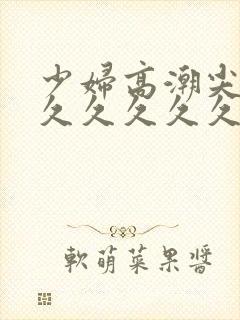 少婦高潮尖
久久久久久
軟萌菜果醬